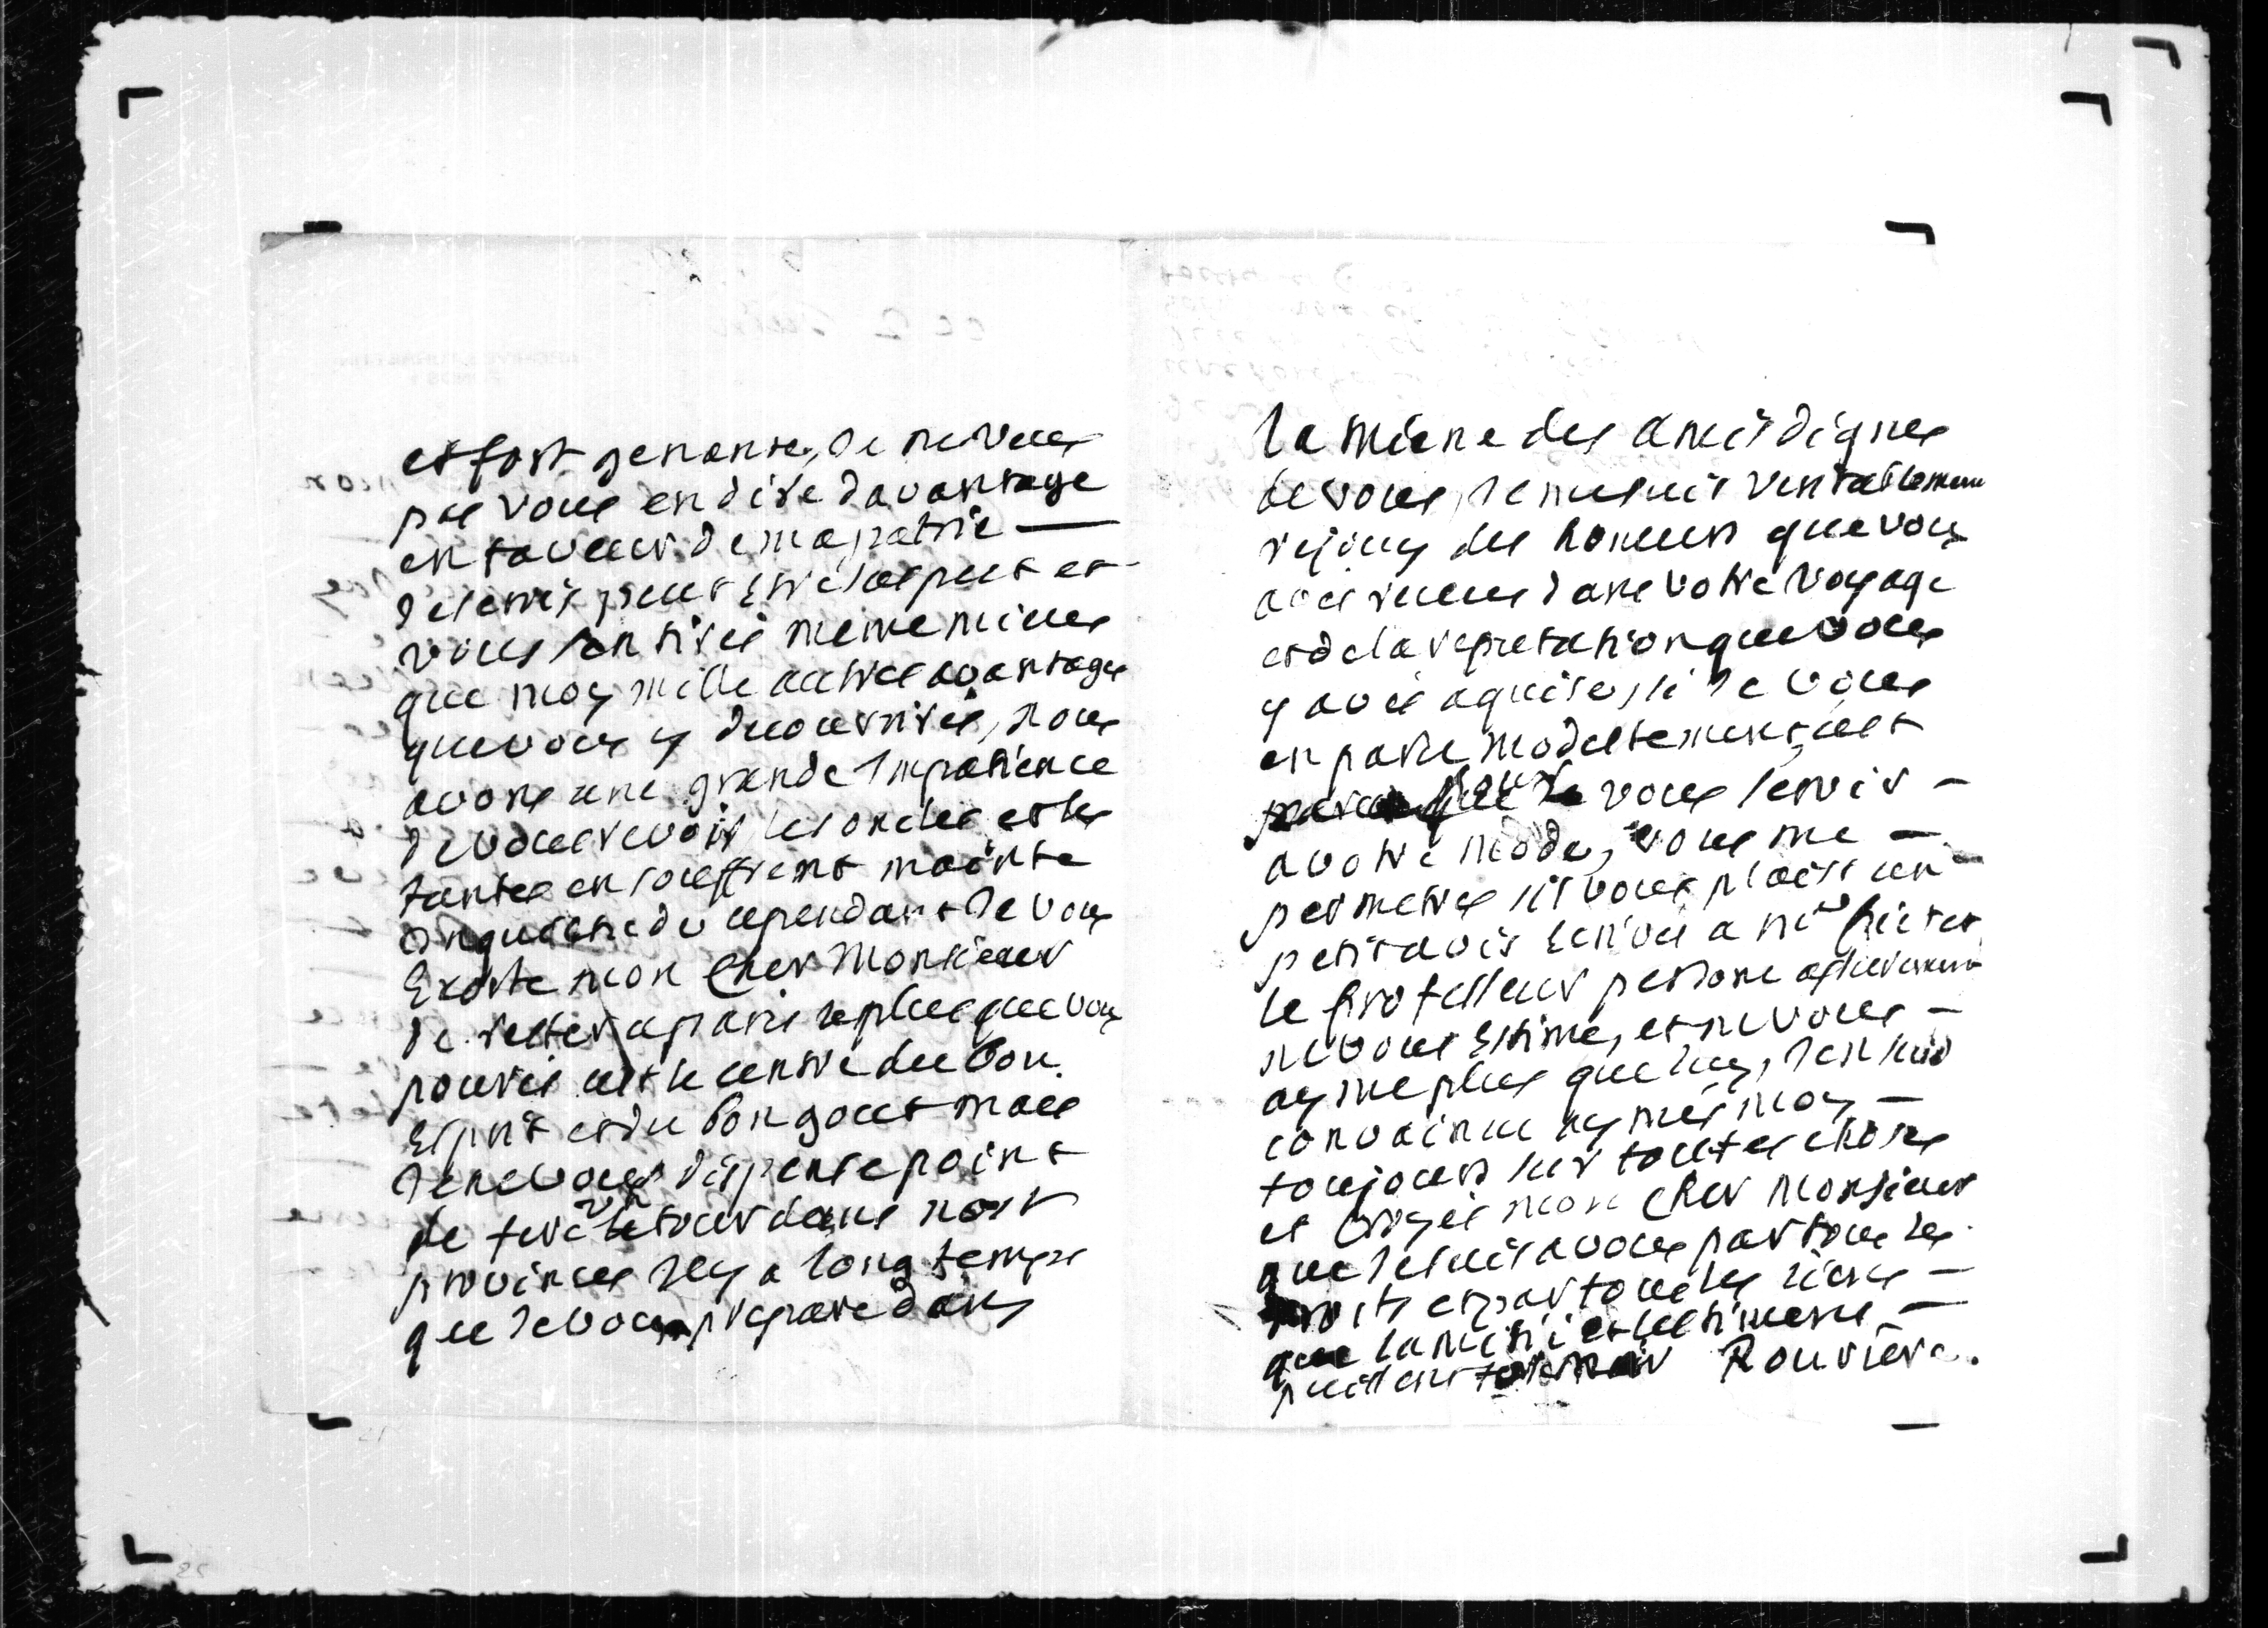 est fort genante, Je ne veus
pas vous en dire davantage
en faveur de ma patrie —
Je serois peut estre suspect et
vous sentires meme mieus
que moy mille autres avantages
que vous y decouvrires, nous
avons une grande Impatience
de vous revoir, les oncles et les
tantes en souffrent mainte
Inquietude cependant Je vous
Exorte mon Cher Monsieur
de rester a paris le plus que vous
pourrés cest le centre du bon
Esprit et du bon gout mais
Je ne vous dispense point
de fere un tour dans nos
provinces Il y a long temps
que Je vous prepare dans
la miene des amis dignes
de vous, Je me suis veritablement
rejouy des honeurs que vous
avés receus dans votre voyage
et de la reputation que vous
y avés aquise, si Je vous
en parle modestement, cest
pour vous servir —
a votre mode, vous me —
permetres sil vous plaist un —
petit avis Ecrivés a mr
le professeur persone asseurement
ne vous Estime, et ne vous —
ayme plus que luy, J'en suis
convaincu aymés moy —
toujours sur toutes choses
et croyés mon cher Monsieur
que Je suis a vous par tous les
droits et par tous les liens —
que lamitié et lestime —
puissent former Rouviere.